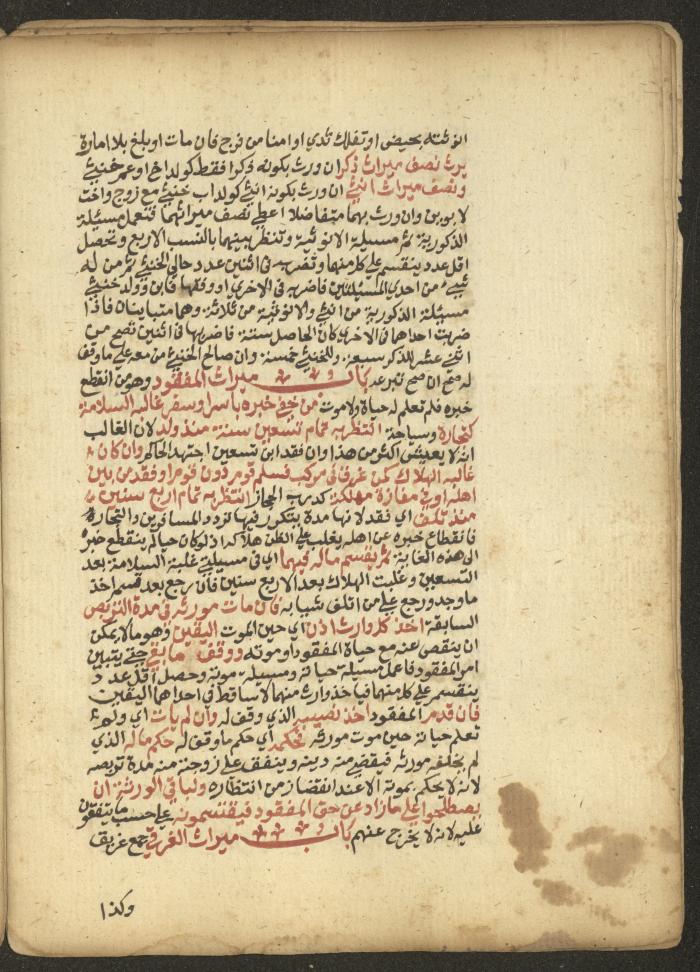 انوثته بحيض او تفلك ثدي او امنا من فرج فان مات او بلغ بلا امارة
يرث نصف ميراث ذكر ان ورث بكونه ذكرا فقط كولد اخ او عم خنثى
ونصف ميراث انثى ان ورث بكونه انثى كولد اب خنثى مع زوج واخت
لابوين وان ورث بهما متفاضلا اعطي نصف ميراثهما فتعمل مسئلة
الذكورية ثم مسيلة الانوثية وتنظر بينهما بالنسب الاربع وتحصل
اقل عدد ينقسم على كل منهما وتضربه في اثنين عدد حالي الخنثى ثم من له
شيء من احدي المسئلتين فاضربه في الاخري او وفقها فابن وولد خنثى
مسئلة الذكورية من اثنين والانوثية من ثلاثة وهما متباينان فاذا
ضربت احداهما في الاخرى كان الحاصل ستة فاضربها في اثنين تصح من
اثني عشر للذكر سبعة وللخنثى خمسة وان صالح الخنثى من معه على ما وقف
له صح ان صح تبرعه باب ميراث المفقود وهو من انقطع
خبره فلم تعلم له حياة ولا موت من خفي خبره باسر او سفر غالبه السلامة
كتجارة وسياحة انتظر به تمام تسعين سنة منذ ولد لان الغالب
انه لا يعيش اكثر من هذا وان فقد ابن تسعين اجتهد الحاكم وان كان
غالبه الهلاك كمن غرق في مركب فسلم قوم دون قوم او فقد من بين
اهله او في مفازة مهلكة كدرب الحجاز انتظر به تمام اربع سنين
منذ تلف اي فقد لانها مدة يتكرر فيها تردد المسافرين والتجار
فانقطاع خبره عن اهله يغلب على الظن هلاكه اذ لو كان حيا لم ينقطع خبره
الى هذه الغاية ثم يقسم ماله فيهما اي في مسيلتي غلبة السلامة بعد
التسعين وغلبت الهلاك بعد الاربع سنين فان رجع بعد قسم اخذ
ما وجد ورجع على من اتلف شيا به فان مات مورثه في مدة التربص
السابقة اخذ كل وارث اذن اي حين الموت اليقين وهو ما لا يمكن
ان ينقص عنه مع حياة المفقود او موته ووقف ما بقي حتى يتبين
امر المفقود فاعمل مسيلة حياته ومسيلة موته وحصل اقل عدد
ينقسم على كل منهما فياخذ وارث منهما لا ساقط في احداهما اليقين
فان قدم المفقود اخذ نصيبه الذي وقف له وان لم يات اي ولم
تعلم حياته حين موت مورثه فحكمه اي حكم ما وقف له حكم ماله الذي
لم يخلفه مورثه فيقضى منه دينه وينفق على زوجته منه مدة تربصه
لانه لا يحكم بموته الا عند انقضا زمن انتظاره ولباقي الورثة ان
يصطلحوا على ما زاد عن حق المفقود فيقتسمونه على حسب ما يتفقون
عليه لانه لا يخرج عنهم باب ميراث الغرقى جمع غريق
وكذا